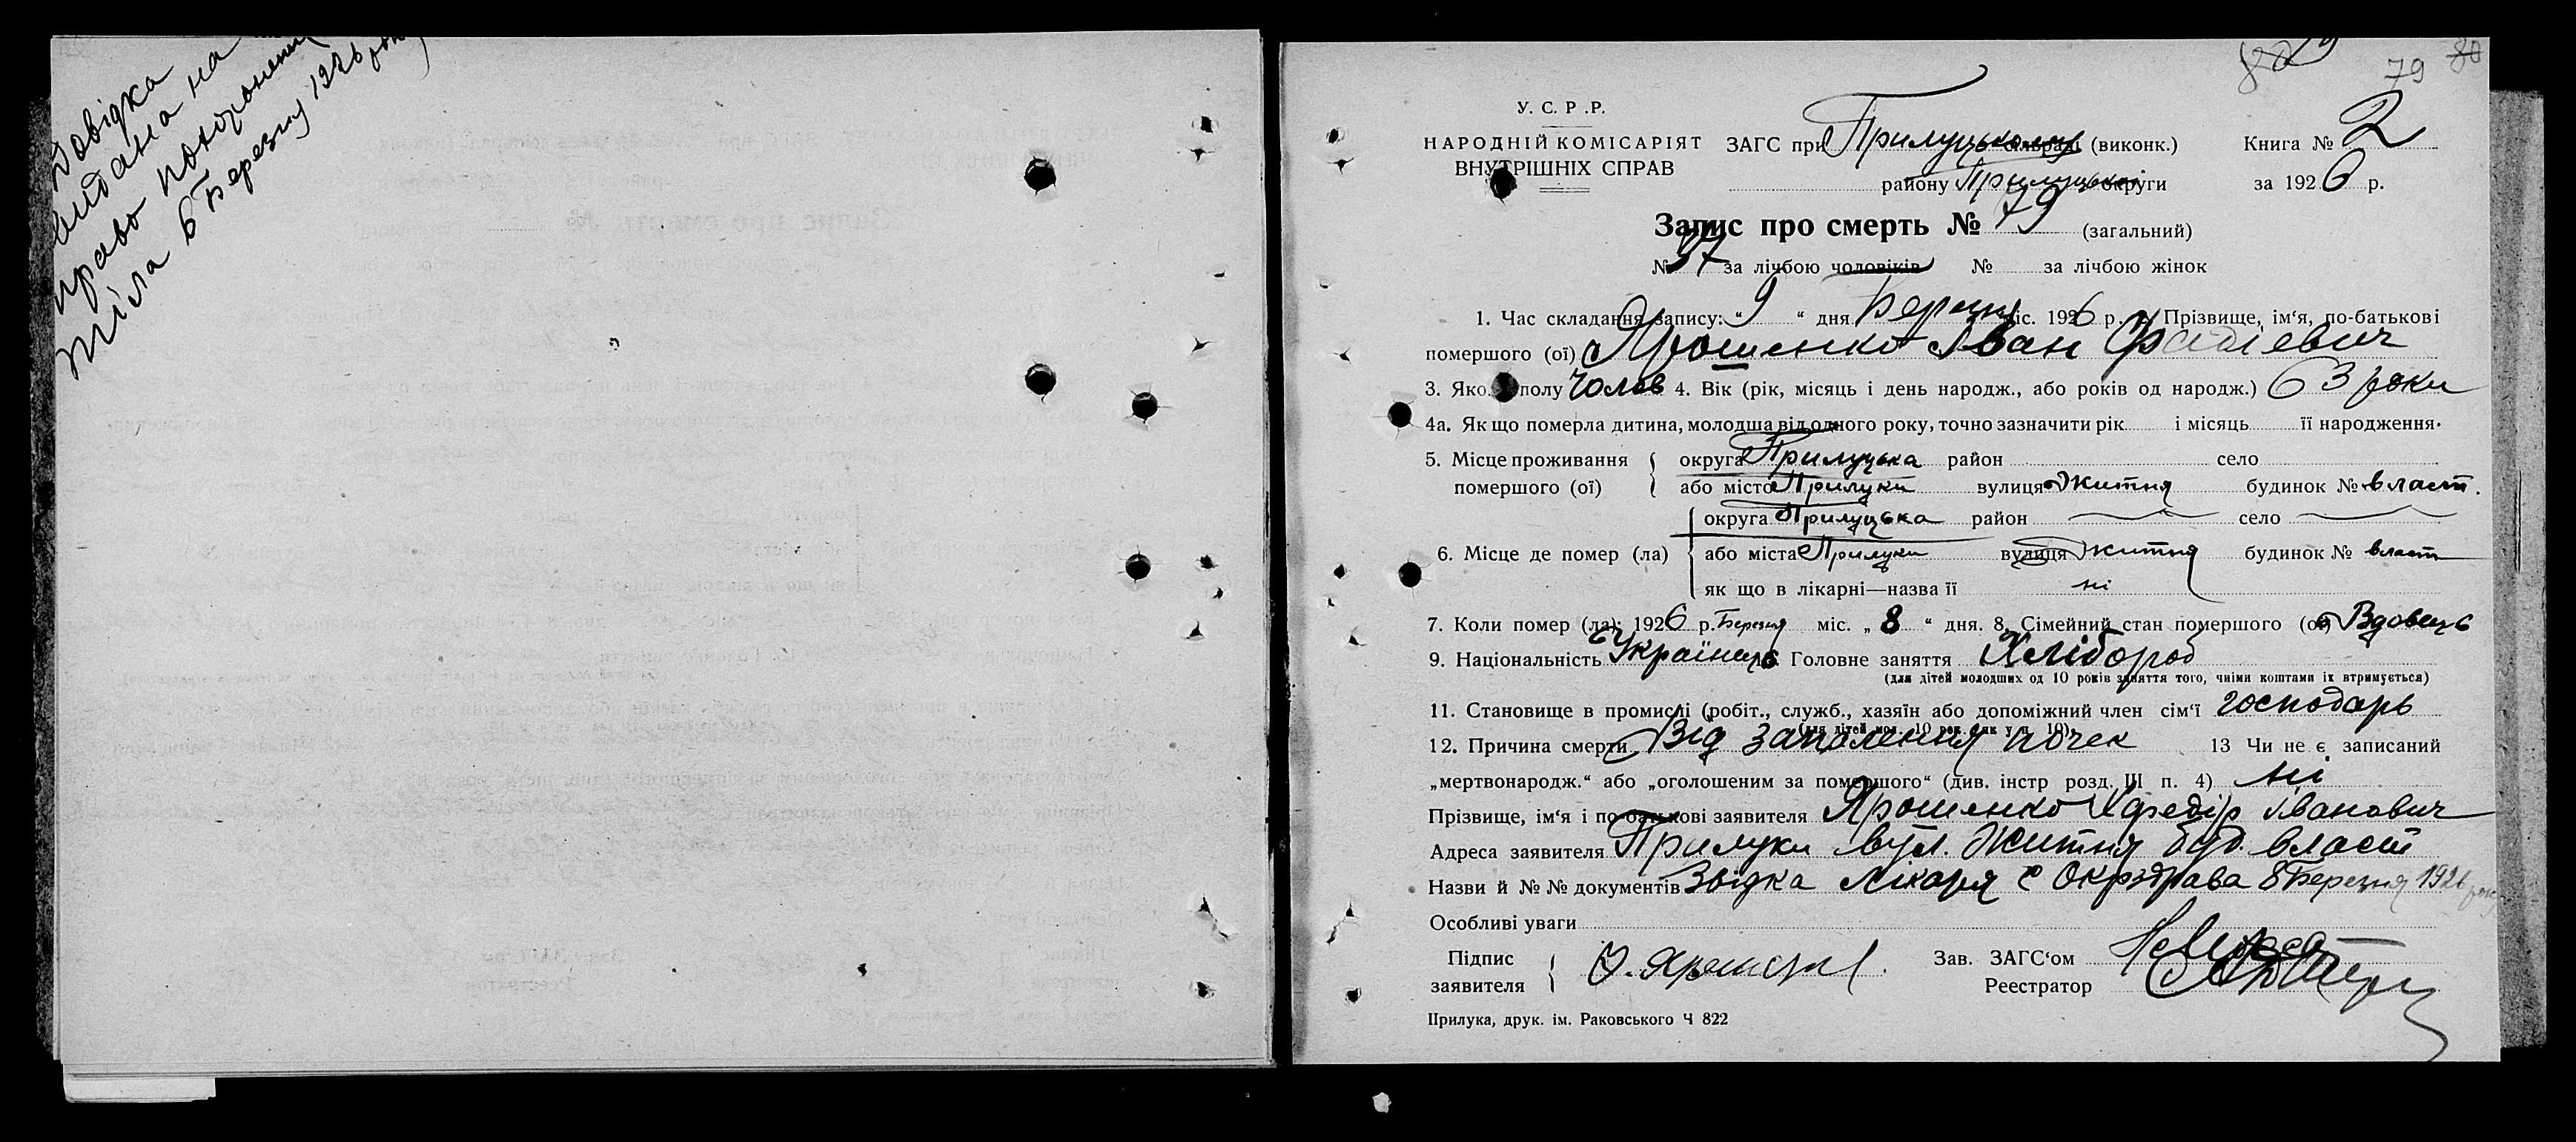 Довідка
видана на
право похоронення
тіла 6 Березня 1926 року
79 80
У. С. Р. Р.
НАРОДНІЙ КОМІСАРІЯТ
ВНУТРІШНІХ СПРАВ
ЗАГС при Прилуцькому сільраді (виконк.)
району Прилуцької округи
Книга № 2
за 1926 р.
Запис про смерть № 79 (загальний)
№ 37 за лічбою чоловіків № за лічбою жінок
1. Час складання запису: “ 9 “ дня Березня міс. 1926 р. Прізвище, ім‘я, по-батькові
помершого (ої) Ярошенко Іван
3. Якого полу Чолов 4. Вік (рік, місяць і день народж., або років од народж.) 63 роки
4а. Як що померла дитина, молодша від одного року, точно зазначити рік і місяць її народження.
5. Місце проживання помершого (ої)
округа Прилуцька район село
або місто Прилуки вулиця Житня будинок № власт.
6. Місце де помер (ла)
округа Прилуцька район село
або міста Прилуки вулиця Житня будинок № власт
як що в лікарні—назва її ні
7. Коли помер (ла): 1926 р. Березня міс. „ 8 “ дня. 8. Сімейний стан помершого (ої) Вдовець
9. Національність Українець 10. Головне заняття Хлібороб
(для дітей молодших од 10 років заняття того, чиїми коштами їх втримується)
11. Становище в промислі (робіт., служб., хазяїн або допоміжний член сім‘ї господарь
(для дітей мол. 10 рок. як у п. 10)
12. Причина смерти Від запалення почек 13 Чи не є записаний
„мертвонародж.“ або „оголошеним за помершого“ (див. інстр розд. III п. 4) ні
Прізвище, ім‘я і по-батькові заявителя Ярошенко Хфедір Іванович
Адреса заявителя Прилуки вул. Житня буд. власт
Назви й №№ документів Звідка лікаря с Окрздрава 8 Березня 1926 року
Особливі уваги
Підпис заявителя
Зав. ЗАГС‘ом
Реестратор
Прилука, друк. ім. Раковського Ч 822